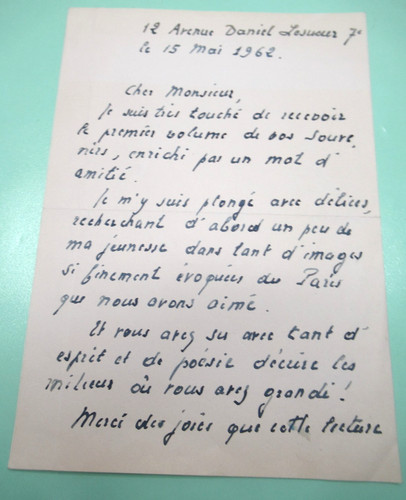 12 Avenue Daniel Lesueur 7e
le 15 Mai 1962.
Cher Monsieur,
Je suis très touché de recevoir
le premier volume de vos souve,
nirs, enrichi par un mot d'
amitié.
Je m'y suis plongé avec délices,
recherchant d'abord un peu de
ma jeunesse dans tant d'images
si finement évoquées du Paris
que nous avons aimé.
Et vous avez su avec tant d'
esprit et de poésie décrire les
milieux où vous avez grandi !
Merci des joies que cette lecture